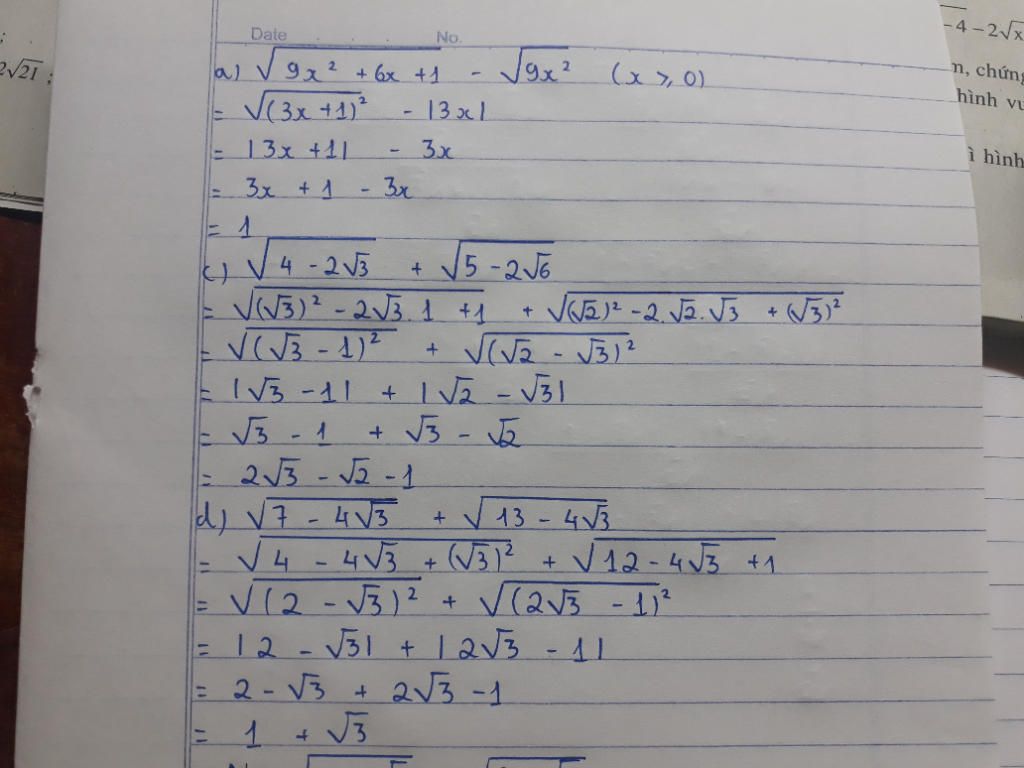 Date No.
a) √(9x² + 6x + 1) - √(9x²) (x ⩾ 0)
= √((3x + 1)²) - |3x|
= |3x + 1| - 3x
= 3x + 1 - 3x
= 1
c) √(4 - 2√3) + √(5 - 2√6)
= √((√3)² - 2√3.1 + 1) + √((√2)² - 2.√2.√3 + (√3)²)
= √((√3 - 1)²) + √((√2 - √3)²)
= |√3 - 1| + |√2 - √3|
= √3 - 1 + √3 - √2
= 2√3 - √2 - 1
d) √(7 - 4√3) + √(13 - 4√3)
= √(4 - 4√3 + (√3)²) + √(12 - 4√3 + 1)
= √((2 - √3)²) + √((2√3 - 1)²)
= |2 - √3| + |2√3 - 1|
= 2 - √3 + 2√3 - 1
= 1 + √3
;
2√21 ;
-4 - 2√x
chứng
hình
ì hình